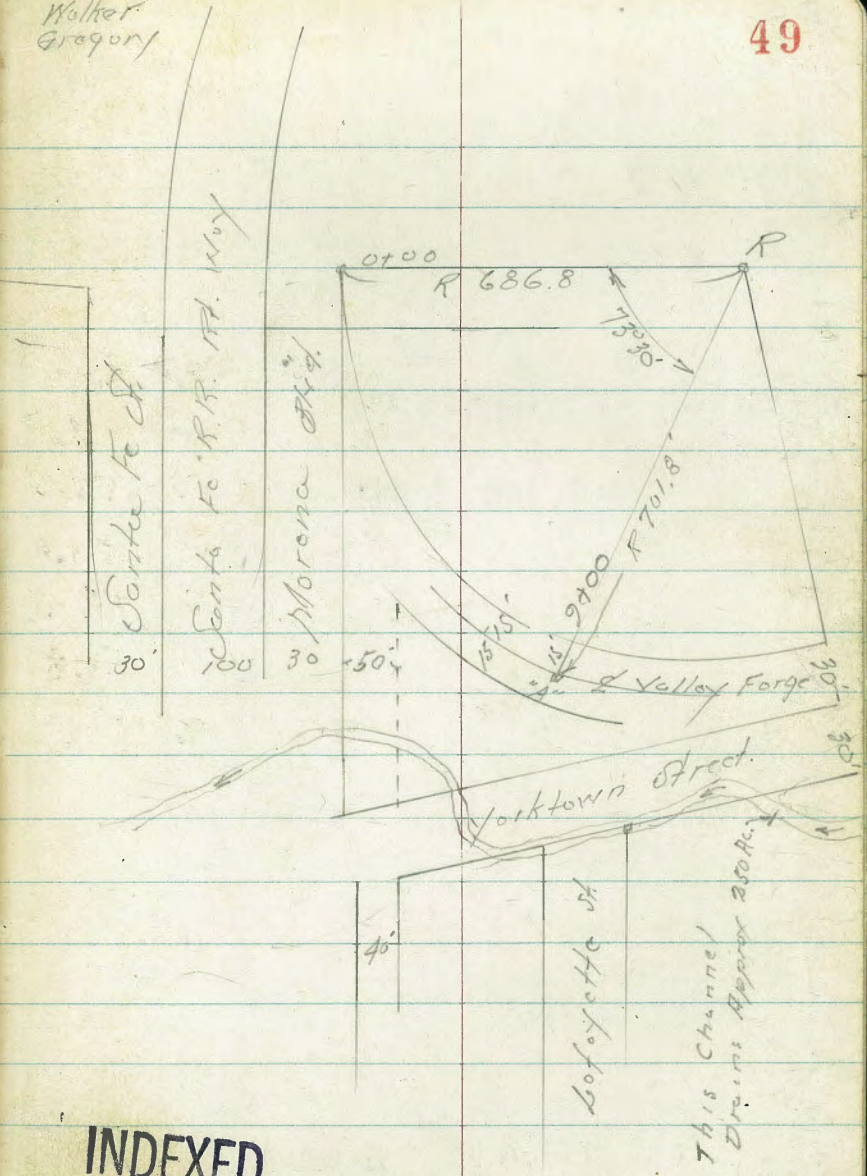 Walker
Gregory
49
0+00
R
R 686.8
73°30'
R 701.8'
Santa Fe St.
Santa Fe R.R. Rt. Way
Morena Blvd.
9+00
15' 15'
15'
30'
100
30
50'
"A"
⅊ Valley Forge
30'
30'
Yorktown Street.
40'
Lafayette St.
This Channel
Drains Approx 250 Ac.
INDEXED